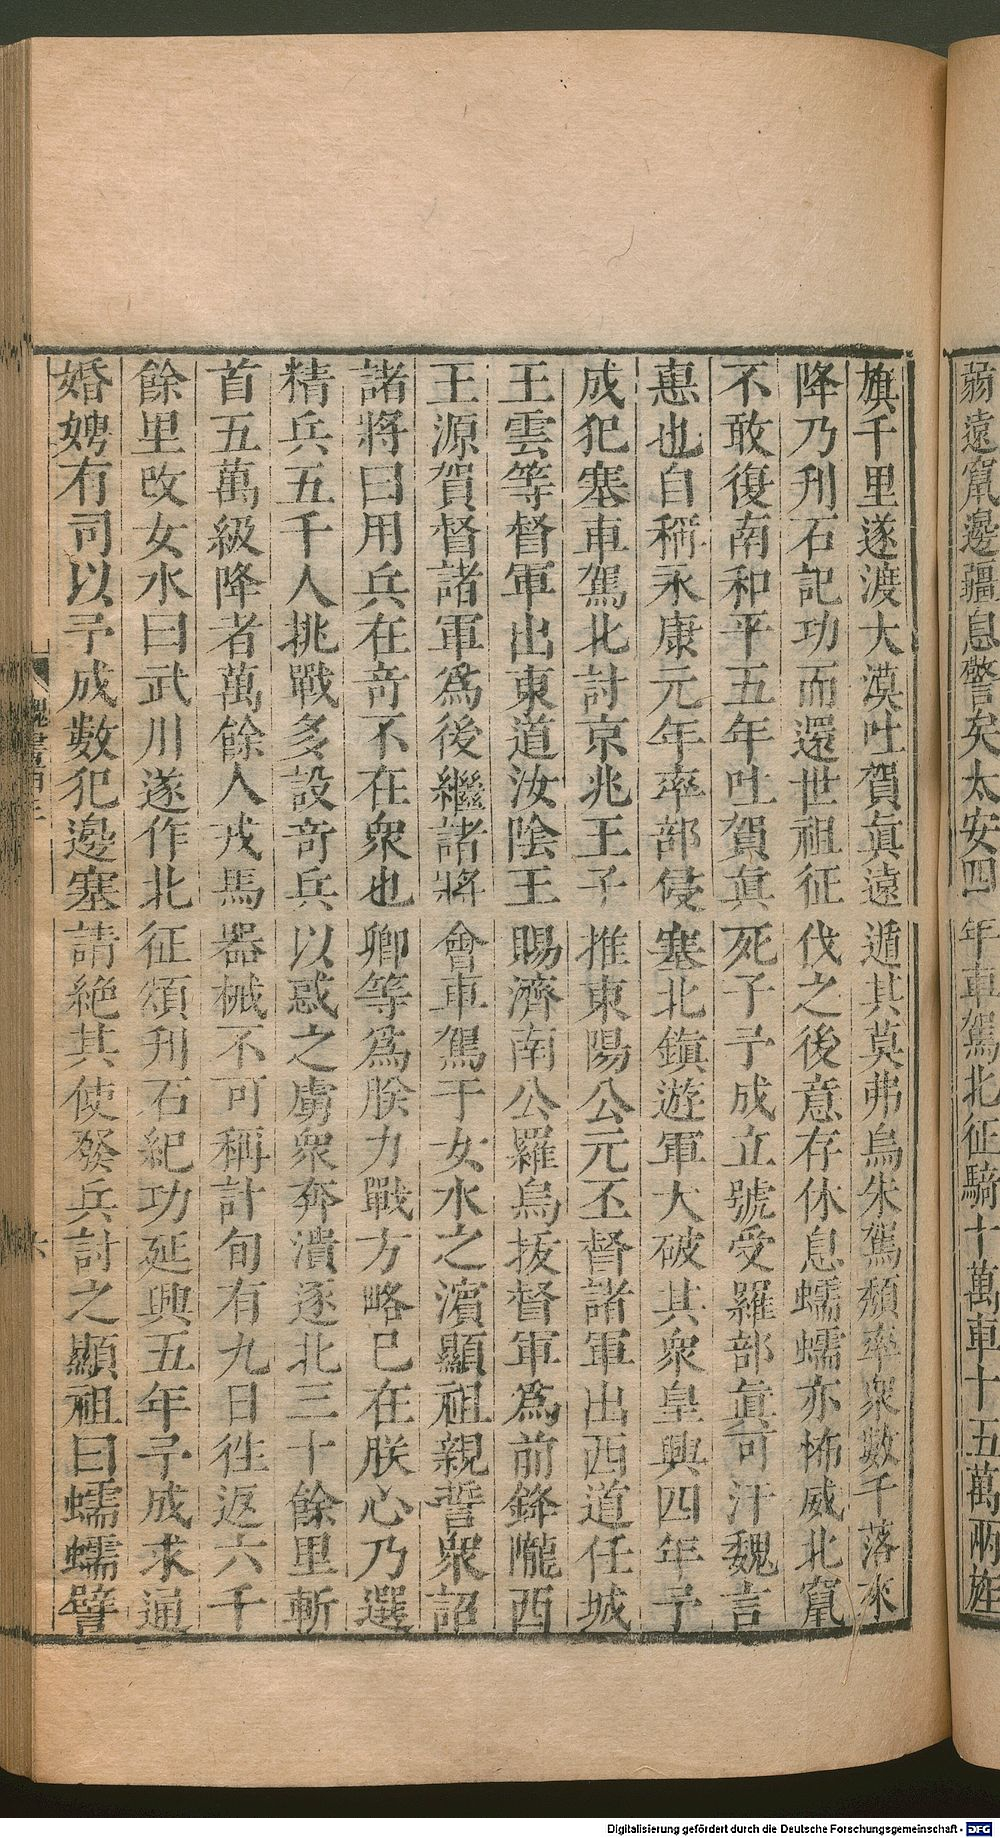 弱遠竄邊疆息警矣太安四年車駕北征騎十萬車十五萬兩旌
旗千里遂渡大漠吐賀眞遠遁其莫弗烏朱駕頹率衆數千落來
降乃刋石記功而還世祖征伐之後意存休息蠕蠕亦怖威北竄
不敢復南和平五年吐賀眞死子予成立號受羅部眞可汗魏言
惠也自稱永康元年率部侵塞北鎭遊軍大破其衆皇興四年予
成犯塞車駕北討京兆王子推東陽公元丕督諸軍出西道任城
王雲等督軍出東道汝陰王賜濟南公羅烏拔督軍爲前鋒隴西
王源賀督諸軍爲後繼諸將會車駕于女水之濱顯祖親誓衆詔
諸將曰用兵在奇不在衆也卿等爲朕力戰方略已在朕心乃選
精兵五千人挑戰多設奇兵以惑之虜衆奔潰逐北三十餘里斬
首五萬級降者萬餘人戎馬器械不可稱計旬有九日徃返六千
餘里改女水曰武川遂作北征頌刋石紀功延興五年予成求通
婚娉有司以予成數犯邊塞請絶其使發兵討之顯祖曰蠕蠕譬
魏書
六
Digitalisierung gefördert durch die Deutsche Forschungsgemeinschaft - DFG